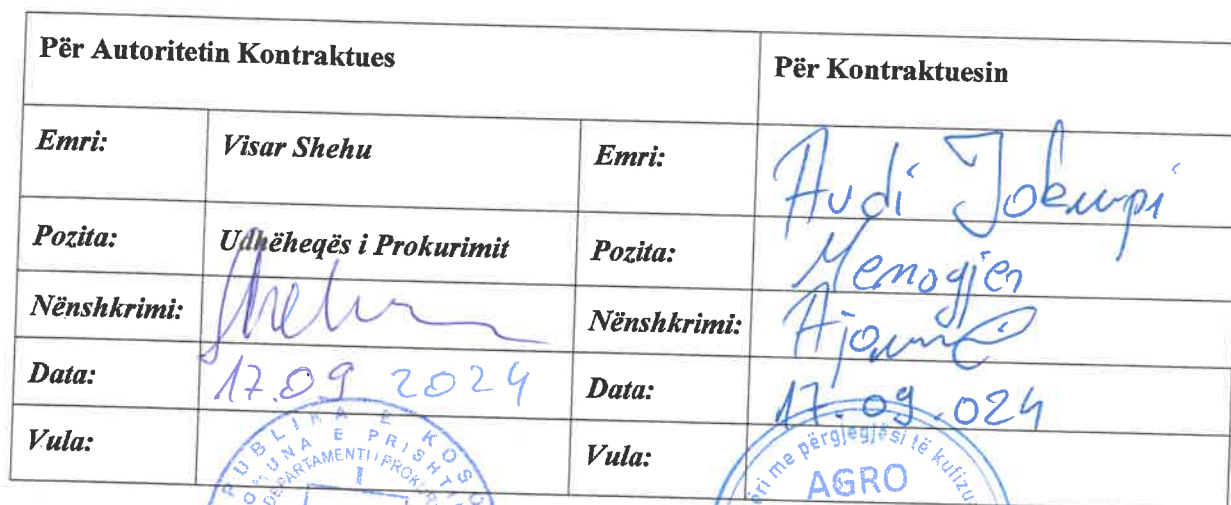 Për Autoritetin Kontraktues Për Kontraktuesin
Emri: Visar Shehu Emri: Avdi Jokupi
Pozita: Udhëheqës i Prokurimit Pozita: Menagjer
Nënshkrimi: Nënshkrimi:
Data: 17.09 2024 Data: 17.09.024
Vula: Vula:
PUBLIKA E KOSO
OMUNA E PRISHT
DEPARTAMENTI I PROKUR
I
ëri me përgjegjësi të kufizu
AGRO